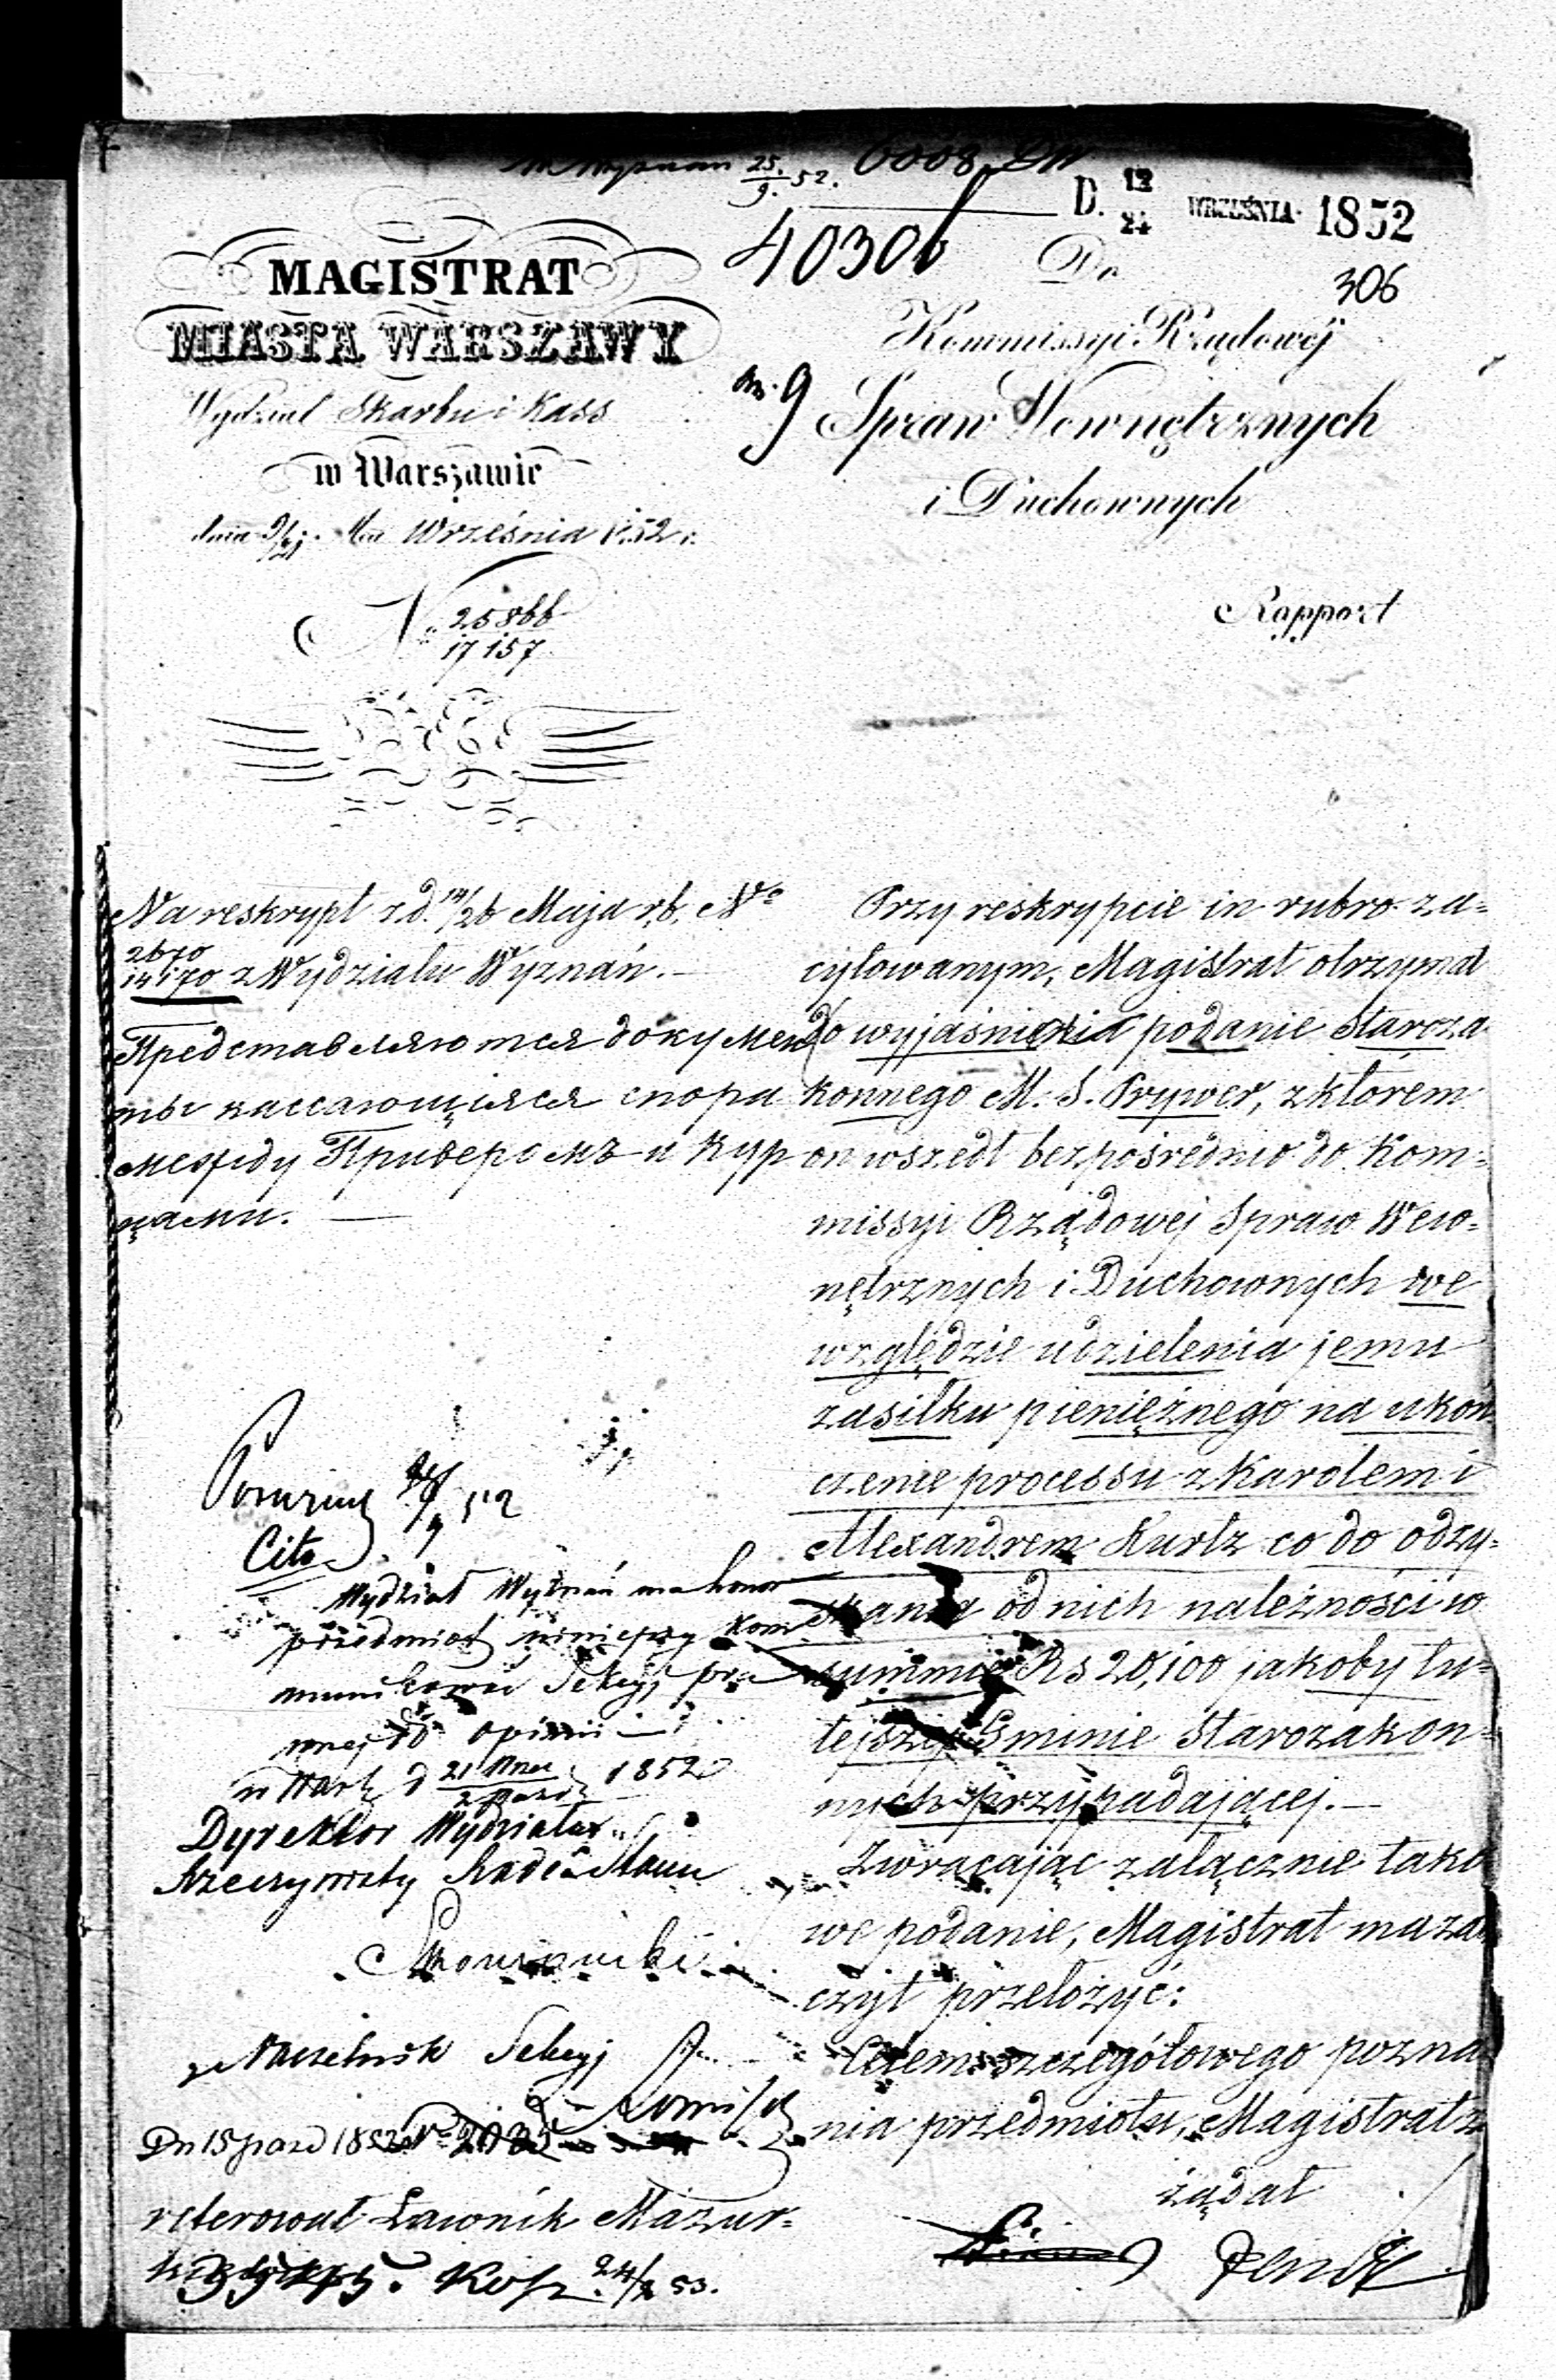 25/9. 52. 6008
D. 12/24 WRZEŚNIA 1852
40306
306
MAGISTRAT
MIASTA WARSZAWY
Wydział Skarbu i Kass
w Warszawie
dnia 9/21 Września 1852 r.
N 25866/17157
Do
Kommissyi Rządowéj
Spraw Wewnętrznych
i Duchownych
Rapport
Na reskrypt z d. 14/26 Maja r.b. No
2670/14170 z Wydziału Wyznań.
Представляются докумен
ты кассающіяся спора
между Приверомъ и Кур
цами.
Przy reskrypcie in rubro za=
cytowanym, Magistrat otrzymał
do wyjaśnienia podanie Staroza
konnego M. S. Prywer, z którem
on wszedł bezpośrednio do Kom=
missyi Rządowej Spraw Wew=
nętrznych i Duchownych we
względzie udzielenia jemu
zasiłku pieniężnego na ukoń
czenie processu z Karolem i
Alexandrem Kurtz co do odzy=
skania od nich należności w
summie Rs 20,100 jakoby tu=
tejszej Gminie Starozakon=
nych przypadającej.—
Zwracając załącznie tako
we podanie, Magistrat ma za
czyt przełożyć:
Celem szczegółowego pozna
nia przedmiotu, Magistrat z
żądał
Cito
Wydział Wyznań ma honor
przedmiot niniejszy kom
munikować Sekcyj pra
wnej do opinii
w Warsz. d 21 Wrze/2 Paźd 1852
Dyrektor Wydziału
Rzeczywisty Radca Stanu
Naczelnik Sekcyj
Dn 15 pazd 1852
referował Ławnik Mazur=
24/2 53.